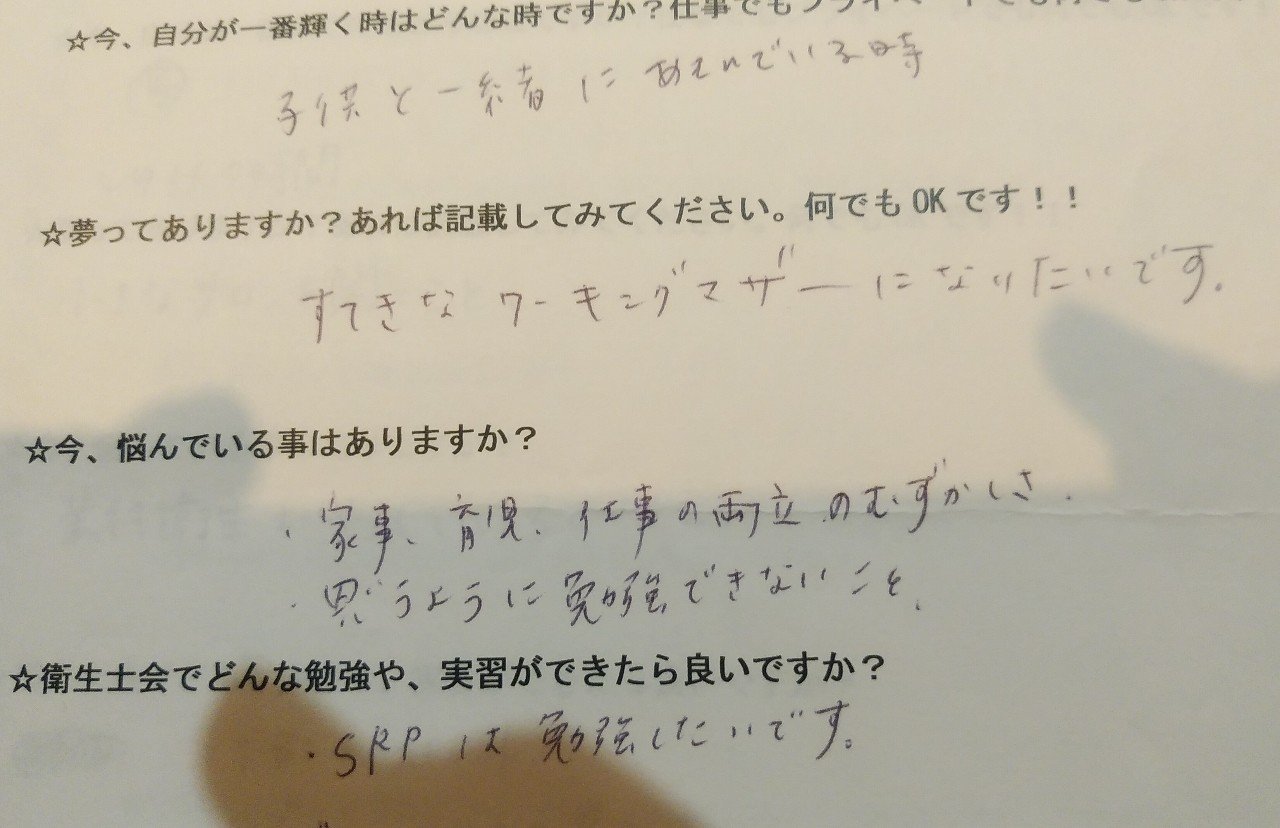 ☆今、自分が一番輝く時はどんな時ですか？仕事でもプライベートでも
子供と一緒にあそんでいる時
☆夢ってありますか？あれば記載してみてください。何でもOKです！！
すてきなワーキングマザーになりたいです。
☆今、悩んでいる事はありますか？
・家事、育児、仕事の両立のむずかしさ、
・思うように勉強できないこと、
☆衛生士会でどんな勉強や、実習ができたら良いですか？
・SRPは勉強したいです。